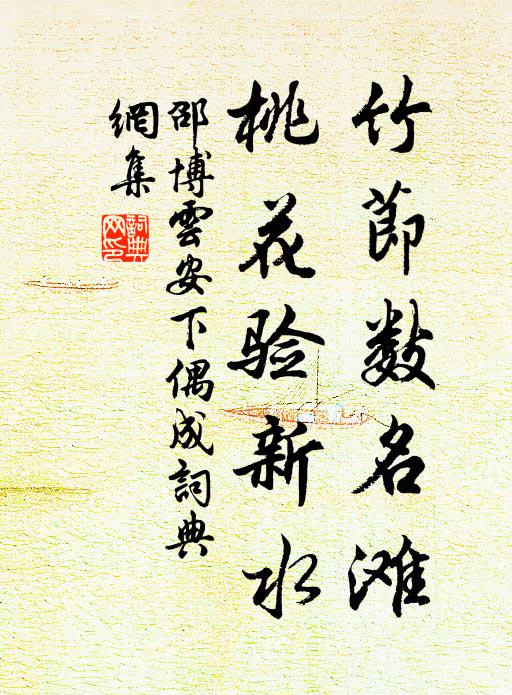 竹節数名滩
桃花验新水
邵博雲安下偶成詞典
網集
詞典
网印